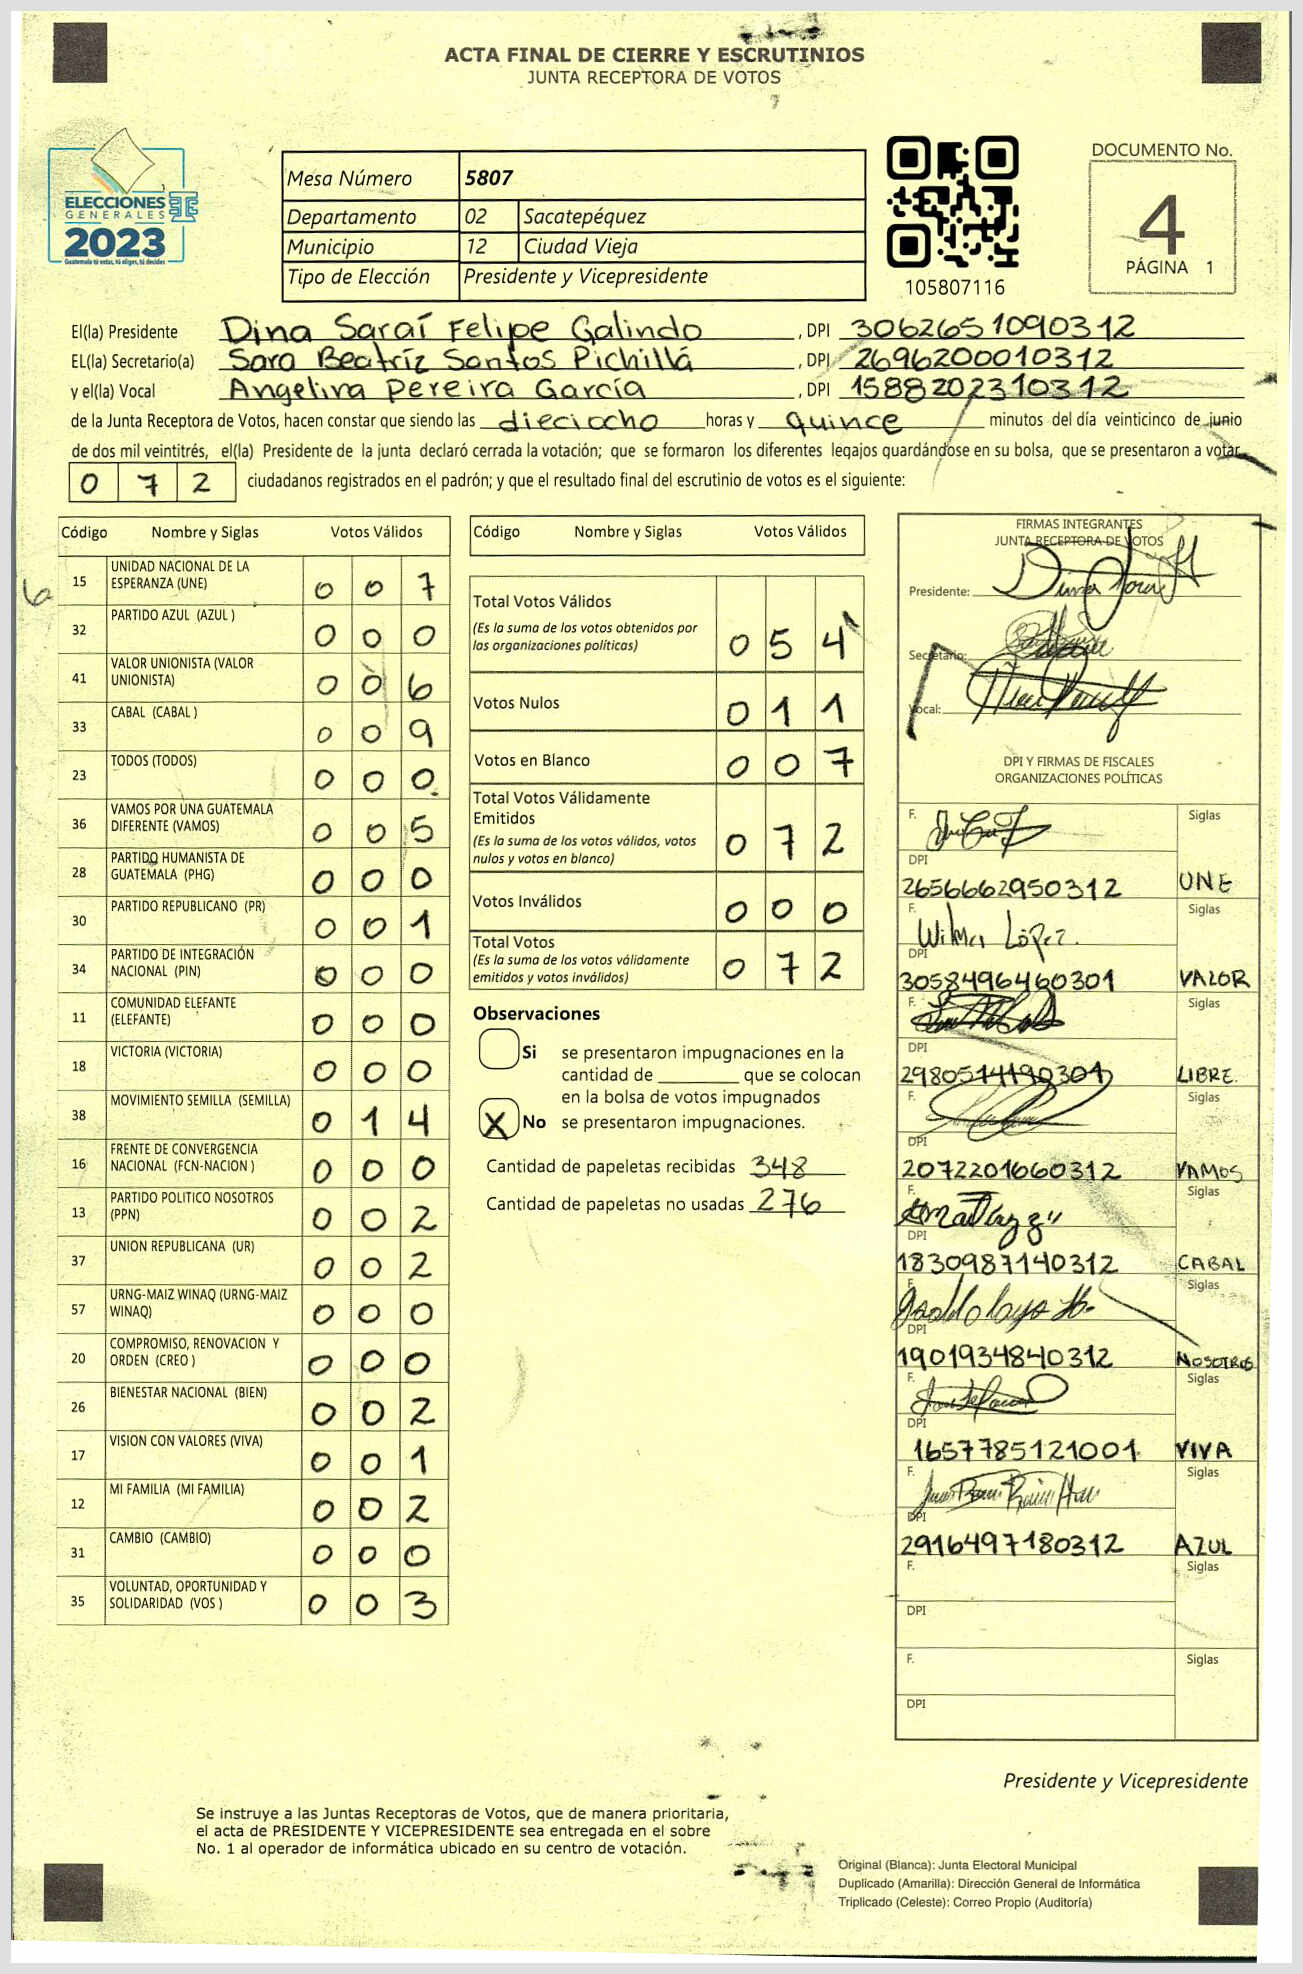 ACTA FINAL DE CIERRE Y ESCRUTINIOS
JUNTA RECEPTORA DE VOTOS
ELECCIONES
GENERALES
2023
Guatemala tú votas, tú eliges, tú decides
Mesa Número 5807
Departamento 02 Sacatepéquez
Municipio 12 Ciudad Vieja
Tipo de Elección Presidente y Vicepresidente
105807116
DOCUMENTO No.
4
PÁGINA 1
El(la) Presidente Dina Saraí Felipe Galindo, DPI 3062651090312
EL(la) Secretario(a) Sara Beatríz Santos Pichillá, DPI 2696200010312
y el(la) Vocal Angelina Pereira García, DPI 1588202310312
de la Junta Receptora de Votos, hacen constar que siendo las dieciocho horas y quince minutos del día veinticinco de junio
de dos mil veintitrés, el(la) Presidente de la junta declaró cerrada la votación; que se formaron los diferentes legajos guardándose en su bolsa, que se presentaron a votar
0 7 2 ciudadanos registrados en el padrón; y que el resultado final del escrutinio de votos es el siguiente:
Código Nombre y Siglas Votos Válidos
15 UNIDAD NACIONAL DE LA ESPERANZA (UNE) 0 0 7
32 PARTIDO AZUL (AZUL ) 0 0 0
41 VALOR UNIONISTA (VALOR UNIONISTA) 0 0 6
33 CABAL (CABAL ) 0 0 9
23 TODOS (TODOS) 0 0 0
36 VAMOS POR UNA GUATEMALA DIFERENTE (VAMOS) 0 0 5
28 PARTIDO HUMANISTA DE GUATEMALA (PHG) 0 0 0
30 PARTIDO REPUBLICANO (PR) 0 0 1
34 PARTIDO DE INTEGRACIÓN NACIONAL (PIN) 0 0 0
11 COMUNIDAD ELEFANTE (ELEFANTE) 0 0 0
18 VICTORIA (VICTORIA) 0 0 0
38 MOVIMIENTO SEMILLA (SEMILLA) 0 1 4
16 FRENTE DE CONVERGENCIA NACIONAL (FCN-NACION ) 0 0 0
13 PARTIDO POLITICO NOSOTROS (PPN) 0 0 2
37 UNION REPUBLICANA (UR) 0 0 2
57 URNG-MAIZ WINAQ (URNG-MAIZ WINAQ) 0 0 0
20 COMPROMISO, RENOVACION Y ORDEN (CREO ) 0 0 0
26 BIENESTAR NACIONAL (BIEN) 0 0 2
17 VISION CON VALORES (VIVA) 0 0 1
12 MI FAMILIA (MI FAMILIA) 0 0 2
31 CAMBIO (CAMBIO) 0 0 0
35 VOLUNTAD, OPORTUNIDAD Y SOLIDARIDAD (VOS ) 0 0 3
Código Nombre y Siglas Votos Válidos
Total Votos Válidos
(Es la suma de los votos obtenidos por las organizaciones políticas) 0 5 4
Votos Nulos 0 1 1
Votos en Blanco 0 0 7
Total Votos Válidamente Emitidos
(Es la suma de los votos válidos, votos nulos y votos en blanco) 0 7 2
Votos Inválidos 0 0 0
Total Votos
(Es la suma de los votos válidamente emitidos y votos inválidos) 0 7 2
Observaciones
Si se presentaron impugnaciones en la
cantidad de ________ que se colocan
en la bolsa de votos impugnados
X No se presentaron impugnaciones.
Cantidad de papeletas recibidas 348
Cantidad de papeletas no usadas 276
FIRMAS INTEGRANTES
JUNTA RECEPTORA DE VOTOS
Presidente:
Secretario:
Vocal:
DPI Y FIRMAS DE FISCALES
ORGANIZACIONES POLÍTICAS
F. Siglas
DPI
2656662950312 UNE
F. Wilmer López Siglas
DPI
3058496460301 VALOR
F. Siglas
DPI
2980514190301 LIBRE.
F. Siglas
DPI
2072201660312 VAMOS
F. Siglas
DPI
1830987140312 CABAL
F. Siglas
DPI
1901934840312 NOSOTROS
F. Siglas
DPI
1657785121001 VIVA
F. Siglas
DPI
2916497180312 AZUL
F. Siglas
DPI
F. Siglas
DPI
Presidente y Vicepresidente
Se instruye a las Juntas Receptoras de Votos, que de manera prioritaria,
el acta de PRESIDENTE Y VICEPRESIDENTE sea entregada en el sobre
No. 1 al operador de informática ubicado en su centro de votación.
Original (Blanca): Junta Electoral Municipal
Duplicado (Amarilla): Dirección General de Informática
Triplicado (Celeste): Correo Propio (Auditoría)